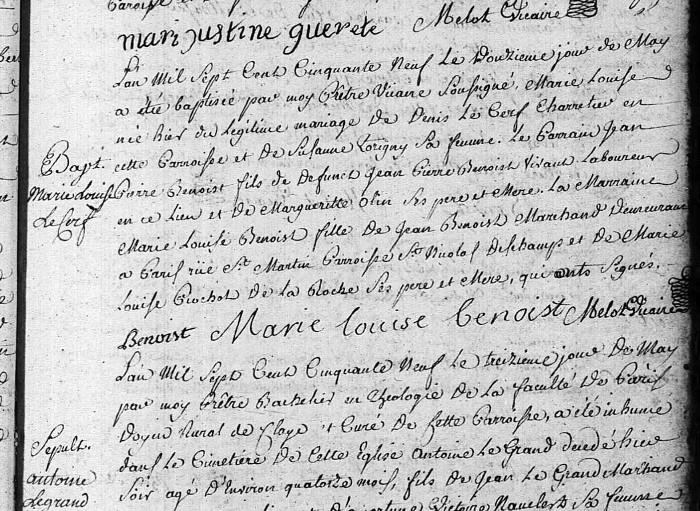 marijustine guerete Melot Vicaire
L'an Mil Sept Cent Cinquante Neuf Le Douzieme jour de May
a été baptisée par moy Prêtre Vicaire Soussigné, Marie Louise
née hier du Legitime mariage de Denis Le Cerf Charretier en
cette Parroisse et de Susanne Lorigny Sa femme. Le Parrain Jean
Pierre Benoist fils de Defunct Jean Pierre Benoist Vivant Laboureur
en ce Lieu et de Margueritte olin Ses pere et Mere. La Marraine
Marie Louise Benoist fille de Jean Benoist Marchand demeurant
a Paris rüe St. Martin Parroisse St. Nicolas deschamps et de Marie
Louise Crochot de La Roche Ses pere et Mere, qui onts Signés.
Bapt.
Marie Louise
Le Cerf
Benoist Marie louise benoist Melot Vicaire
L'an Mil Sept Cent Cinquante Neuf Le treizieme jour de May
par moy Prêtre Bachelier en Theologie de La faculté de Paris
Doyen Rural de Claye et Curé de Cette Parroisse, a été inhumé
dans le Cimetiere de Cette Eglise Antoine Le Grand decedé hier
Soir agé d'Environ quatorze mois, fils de Jean Le Grand Marchand
Victoire Sa femme
Sépult.
antoine
Legrand